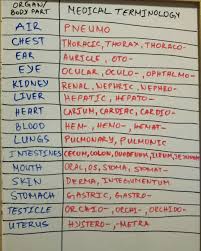 ORGAN/ MEDICAL TERMINOLOGY
BODY PART
AIR PNEUMO
CHEST THORACIC, THORAX, THORACO-
EAR AURICLE, OTO-
EYE OCULAR, OCULO-, OPHTALMO-
KIDNEY RENAL, NEPHRIC, NEPHRO-
LIVER HEPATIC, HEPATO-
HEART CARIUM, CARDIAC, CARDIO-
BLOOD HEM-, HEMO-, HEMAT-
LUNGS PULMONARY, PULMONIC
INTESTINES CECUM, COLON, DUODENUM, ILEUM,
MOUTH ORAL, OS, STOMA, STOMAT-
SKIN DERMA, INTEGUMENTUM
STOMACH GASTRIC, GASTRO-
TESTICLE ORCHIO-, ORCHI-, ORCHIDO-
UTERUS HYSTERO-, -METRA